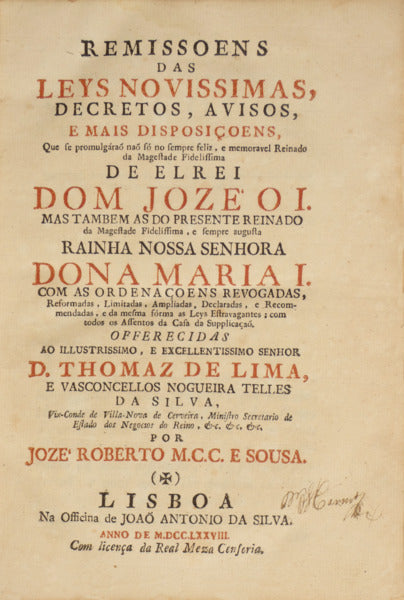 REMISSOENS
DAS
LEYS NOVISSIMAS,
DECRETOS, AVISOS,
E MAIS DISPOSIÇOENS,
Que se promulgáraõ naõ só no sempre feliz, e memoravel Reinado
da Magestade Fidelissima
DE ELREI
DOM JOZE' O I.
MAS TAMBEM AS DO PRESENTE REINADO
da Magestade Fidelissima, e sempre augusta
RAINHA NOSSA SENHORA
DONA MARIA I.
COM AS ORDENAÇOENS REVOGADAS,
Reformadas, Limitadas, Ampliadas, Declaradas, e Recom-
mendadas, e da mesma fórma as Leys Estravagantes; com
todos os Assentos da Casa da Supplicaçaõ.
OFFERECIDAS
AO ILLUSTRISSIMO, E EXCELLENTISSIMO SENHOR
D. THOMAZ DE LIMA,
E VASCONCELLOS NOGUEIRA TELLES
DA SILVA,
Vix-Conde de Villa-Nova de Cerveira, Ministro Secretario de
Estado dos Negocios do Reino, &c. &c. &c.
POR
JOZE' ROBERTO M.C.C. E SOUSA.
(✠)
LISBOA
Na Officina de JOAÕ ANTONIO DA SILVA.
ANNO DE M.DCC.LXXVIII.
Com licença da Real Meza Censoria.